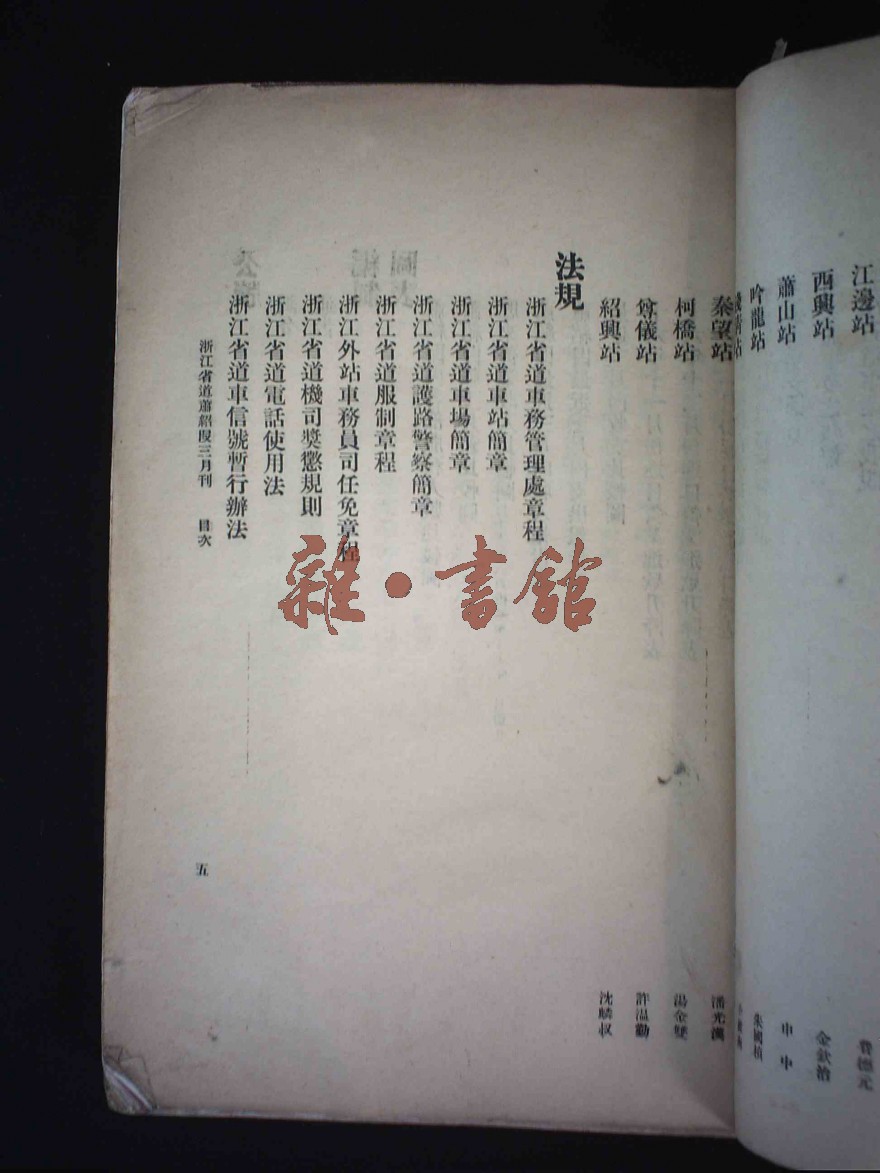 江邊站 費德元
西興站 金欽治
蕭山站 申屮
吟龍站 朱國楨
站
秦望站 潘光漢
柯橋站 湯金雙
尊儀站 許温勤
紹興站 沈麟叔
法規
浙江省道車務管理處章程
浙江省道車站簡章
浙江省道車場簡章
浙江省道護路警察簡章
浙江省道服制章程
浙江外站車務員司任免章程
浙江省道機司獎懲規則
浙江省道電話使用法
浙江省道車信號暫行辦法
浙江省道蕭紹叚三月刊 目次 五
雜·書館